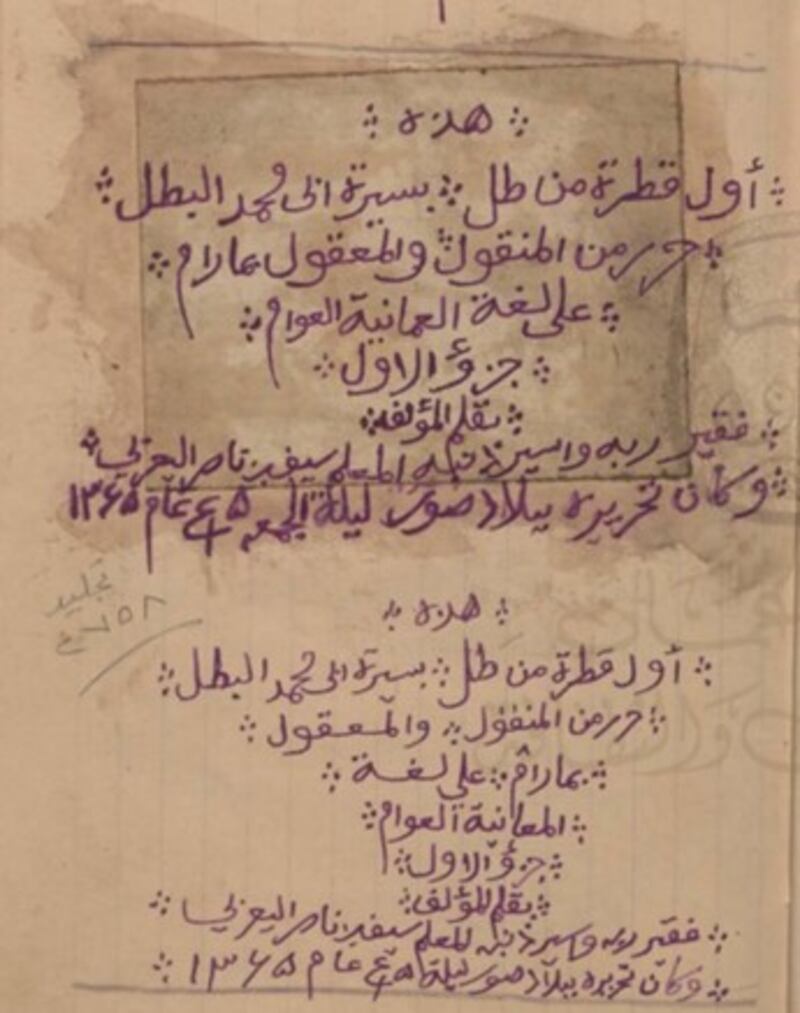 هذه
أول قطرة من طل بسيرة ابى محمد البطل
حرر من المنقول والمعقول بمارام
على لغة العمانية العوام
جزؤ الاول
بقلم المؤلف
فقير ربه واسير ذنبه المعلم سيف بن ناصر
وكان تحريره ببلاد صور ليلة الجمعه ٥ ع عام ١٣٦٥
تجليد
هذه
أول قطرة من طل بسيرة ابى محمد البطل
حرر من المنقول والمعقول
بمارام على لغة
العوام
جزؤ الاول
بقلم المؤلف
فقير ربه واسير ذنبه المعلم سيف بن ناصر
وكان تحريره ببلاد صور ليلة ٥ ع عام ١٣٦٥